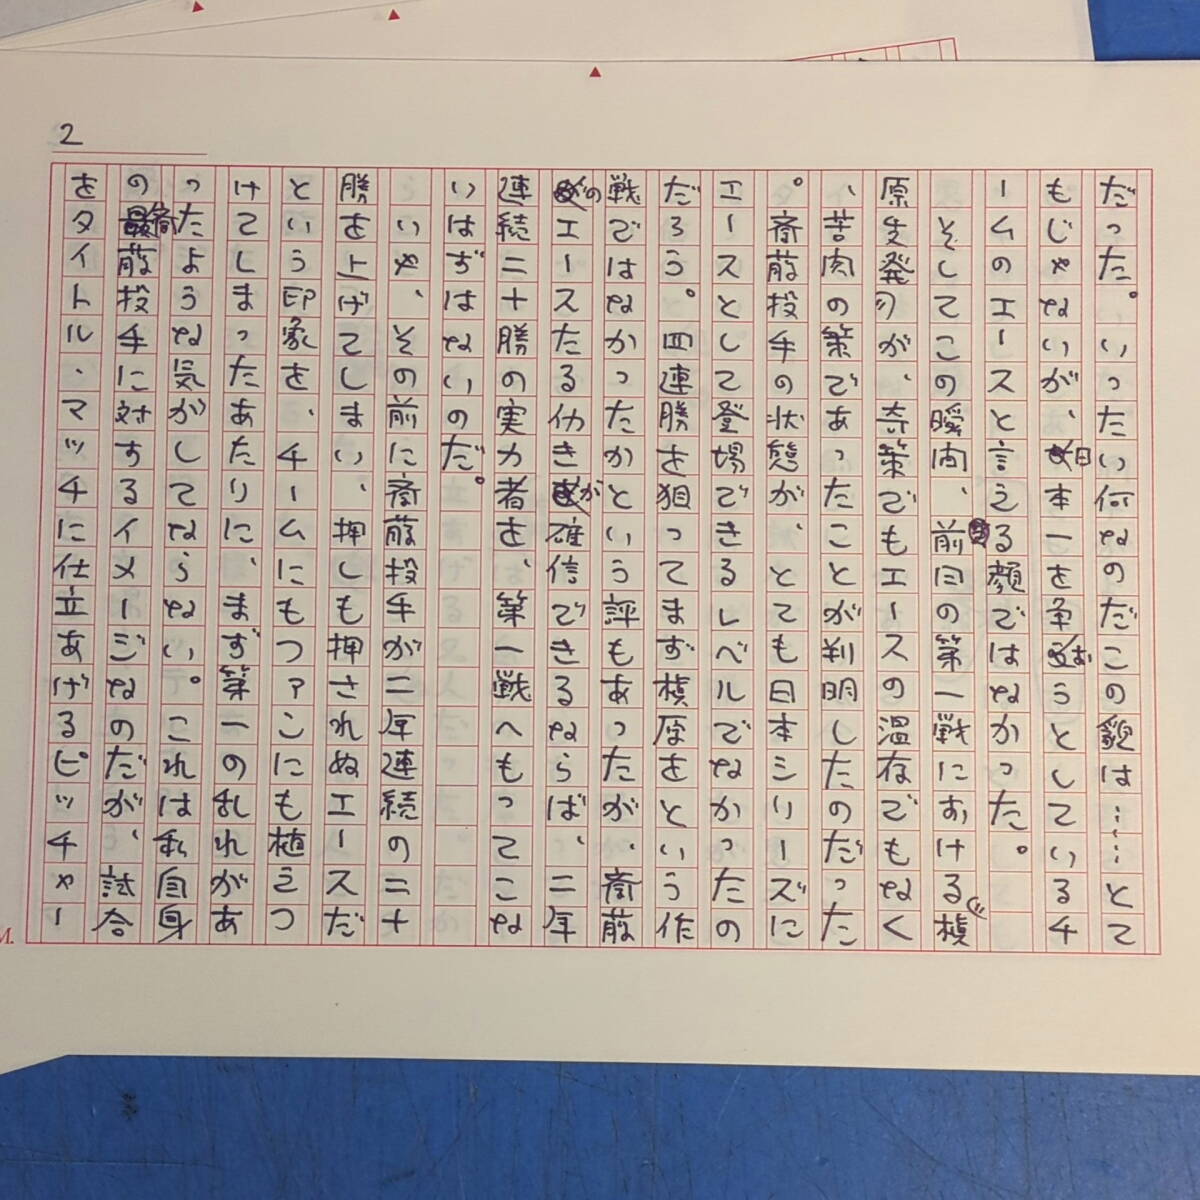 2
だった。いったい何なのだこの貌は……とて
もじゃないが、日本一を争おうとしているチ
ームのエースと言える顔ではなかった。
そしてこの瞬間、前日の第一戦における槙
原先発が、奇策でもエースの温存でもなく
、苦肉の策であったことが判明したのだった
。斎藤投手の状態が、とても日本シリーズに
エースとして登場できるレベルでなかったの
だろう。四連勝を狙ってまず槙原をという作
戦ではなかったかという評もあったが、斎藤
のエースたる働きが確信できるならば、二年
連続二十勝の実力者を、第一戦へもってこな
いはずはないのだ。
いや、その前に斎藤投手が二年連続の二十
勝を上げてしまい、押しも押されぬエースだ
という印象を、チームにもファンにも植えつ
けてしまったあたりに、まず第一の乱れがあ
ったような気がしてならない。これは私自身
の斎藤投手に対するイメージなのだが、試合
をタイトル・マッチに仕立あげるピッチャー